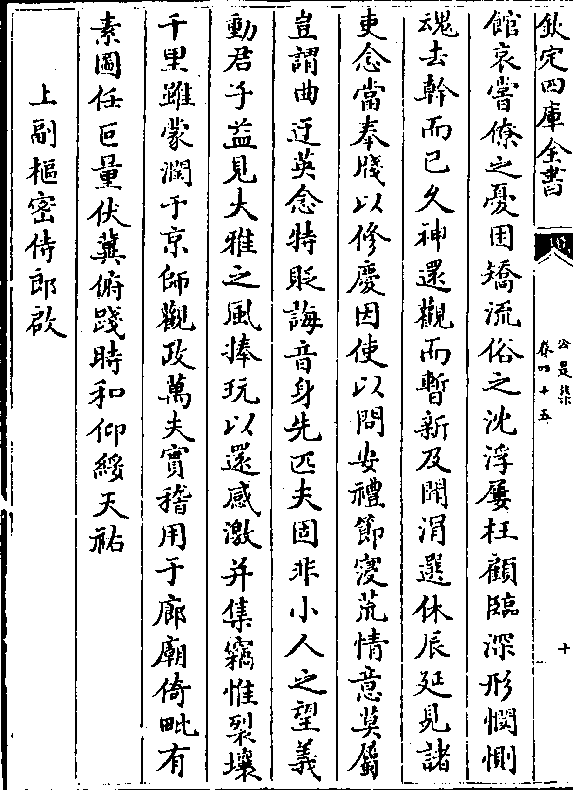 欽定四庫全書
公是集
卷四十五
十
館哀嘗僚之憂困矯流俗之沈浮屢枉顧臨深形憫惻
魂去幹而已久神還觀而暫新及聞涓選休辰延見諸
吏念當奉牋以修慶因使以問安禮節寖荒情意莫屬
豈謂曲迂英念特貶誨音身先匹夫固非小人之望義
動君子益見大雅之風捧玩以還感激并集竊惟裂壤
千里雖蒙潤于京師觀政萬夫實稽用于廊廟倚毗有
素圖任巨量伏冀俯踐時和仰綏天祐
上副樞密侍郎啟